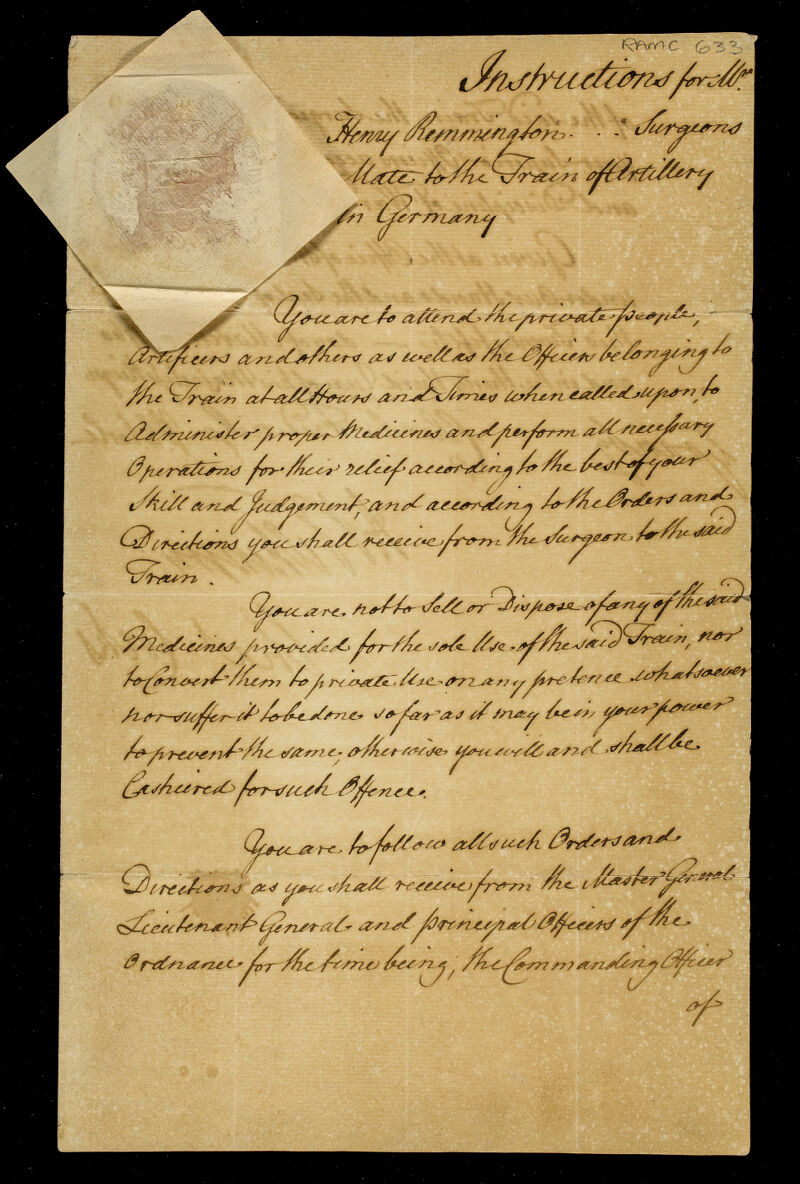 RAMC 633
Instructions for Mr.
Henry Remmington . . : Surgeons
Mate to the Train of Artillery
in Germany
You are to attend the private people,
Artificers and others as well as the Officers belonging to
the Train at all Hours and Times when called upon, to
Administer proper Medicines and perform all necessary
Operations for their relief according to the best of your
Skill and Judgement, and according to the Orders and
Directions you shall receive from the Surgeon to the said
Train.
You are not to Sell or Dispose of any of the said
Medicines provided for the sole Use of the said Train, nor
to Convert them to private Use on any pretence whatsoever
nor suffer it to be done so far as it may be in your power
to prevent the same, otherwise you will and shall be
Cashiered for such Offence.
You are to follow all such Orders and
Directions as you shall receive from the Master General
Lieutenant General and principal Officers of the
Ordnance for the time being, the Commanding Officer
of